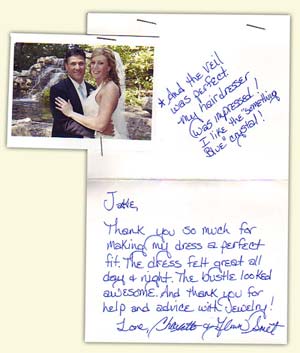 * And the Veil
was perfect
my hairdresser
was impressed!
I like the "something
Blue" crystal!
Thank you so much for
making my dress a perfect
fit. The dress felt great all
day & night. The bustle looked
awesome. And thank you for
help and advice with jewelry!
Love,